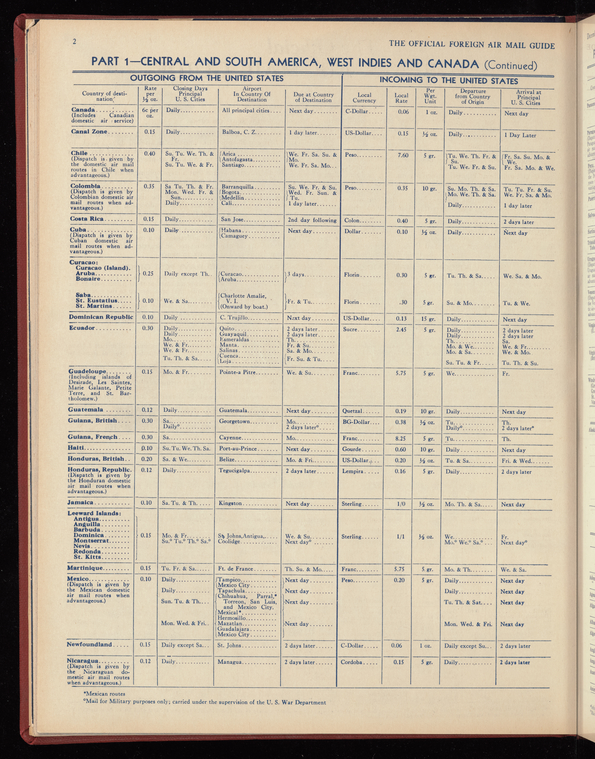 2
THE OFFICIAL FOREIGN AIR MAIL GUIDE
PART 1—CENTRAL AND SOUTH AMERICA, WEST INDIES AND CANADA (Continued)
OUTGOING FROM THE UNITED STATES
INCOMING TO THE UNITED STATES
Country of desti-nation | Rate per ½ oz. | Closing Days Principal U. S. Cities | Airport In Country Of Destination | Due at Country of Destination | Local Currency | Local Rate | Per Wgt. Unit | Departure from Country of Origin | Arrival at Principal U. S. Cities
Canada (Includes Canadian domestic air service) | 6c per oz. | Daily | All principal cities | Next day | C-Dollar | 0.06 | 1 oz. | Daily | Next day
Canal Zone | 0.15 | Daily | Balboa, C. Z. | 1 day later | US-Dollar | 0.15 | ½ oz. | Daily | 1 Day Later
Chile (Dispatch is given by the domestic air mail routes in Chile when advantageous.) | 0.40 | Su. Tu. We. Th. & Fr. Su. Tu. We. & Fr. | Arica Antofagasta Santiago | We. Fr. Sa. Su. & Mo. We. Fr. Sa. Mo. | Peso | 7.60 | 5 gr. | Tu. We. Th. Fr. & Su. Tu. We. Fr. & Su. | Fr. Sa. Su. Mo. & We. Fr. Sa. Mo. & We.
Colombia (Dispatch is given by Colombian domestic air mail routes when ad-vantageous.) | 0.35 | Sa Tu. Th. & Fr. Mon. Wed. Fr. & Sun. Daily | Barranquilla Bogota Medellin Cali | Su. We. Fr. & Su. Wed. Fr. Sun. & Tu. 1 day later | Peso | 0.35 | 10 gr. | Su. Mo. Th. & Sa. Mo. We. Th. & Sa. Daily | Tu. Tu. Fr. & Su. We. Fr. Sa. & Mo. 1 day later
Costa Rica | 0.15 | Daily | San Jose | 2nd day following | Colon | 0.40 | 5 gr. | Daily | 2 days later
Cuba (Dispatch is given by Cuban domestic air mail routes when ad-vantageous.) | 0.10 | Daily | Habana Camaguey | Next day | Dollar | 0.10 | ½ oz. | Daily | Next day
Curacao:
Curacao (Island). Aruba Bonaire | 0.25 | Daily except Th. | Curacao Aruba | 3 days | Florin | 0.30 | 5 gr. | Tu. Th. & Sa. | We. Su. & Mo.
Saba St. Eustatius St. Martins | 0.10 | We. & Sa. | Charlotte Amalie, V. I. (Onward by boat.) | Fr. & Tu. | Florin | .30 | 5 gr. | Su. & Mo. | Tu. & We.
Dominican Republic | 0.10 | Daily | C. Trujillo | Next day | US-Dollar | 0.15 | 15 gr. | Daily | Next day
Ecuador | 0.30 | Daily Daily Mo. We. & Fr. We. & Fr. Tu. Th. & Sa. | Quito Guayaquil Esmeraldas Manta Salinas Cuenca Loja | 2 days later 2 days later Th. Fr. & Su. Sa. & Mo. Fr. Su. & Tu. | Sucre | 2.45 | 5 gr. | Daily Daily Th. Mo. & We. Mo. & Sa. Su. Tu. & Fr. | 2 days later 2 days later Su. We. & Fr. We. & Mo. Tu. Th. & Su.
Guadeloupe (Including islands of Desirade, Les Saintes, Marie Galante, Petite Terre, and St. Bar-tholomew.) | 0.15 | Mo. & Fr. | Pointe-a Pitre | We. & Su. | Franc | 5.75 | 5 gr. | We. | Fr.
Guatemala | 0.12 | Daily | Guatemala | Next day | Quetzal | 0.19 | 10 gr. | Daily | Next day
Guiana, British | 0.30 | Sa. Daily* | Georgetown | Mo. 2 days later* | BG-Dollar | 0.38 | ½ oz. | Tu. Daily* | Th. 2 days later*
Guiana, French | 0.30 | Sa. | Cayenne | Mo. | Franc | 8.25 | 5 gr. | Tu. | Th.
Haiti | 0.10 | Su. Tu. We. Th. Sa. | Port-au-Prince | Next day | Gourde | 0.60 | 10 gr. | Daily | Next day
Honduras, British | 0.20 | Sa. & We. | Belize | Mo. & Fri. | US-Dollar | 0.20 | ½ oz. | Tu. & Sa. | Fri. & Wed.
Honduras, Republic. (Dispatch is given by the Honduran domestic air mail routes when advantageous.) | 0.12 | Daily | Tegucigalpa | 2 days later | Lempira | 0.16 | 5 gr. | Daily | 2 days later
Jamaica | 0.10 | Sa. Tu. & Th. | Kingston | Next day | Sterling | 1/0 | ½ oz. | Mo. Th. & Sa. | Next day
Leeward Islands:
Antigua Anguilla Barbuda Dominica Montserrat Nevis Redonda St. Kitts | 0.15 | Mo. & Fr. Su.* Tu.* Th.* Sa.* | St. Johns, Antigua, Coolidge | We. & Su. Next day* | Sterling | 1/1 | ½ oz. | We. Mo.* We.* Sa.* | Fr. Next day*
Martinique | 0.15 | Tu. Fr. & Sa. | Ft. de France | Th. Su. & Mo. | Franc | 5.75 | 5 gr. | Mo. & Th. | We. & Sa.
Mexico (Dispatch is given by the Mexican domestic air mail routes when advantageous.) | 0.10 | Daily Daily Sun. Tu. & Th. Mon. Wed. & Fri. | Tampico Mexico City Tapachola Chihuahua, Parral,* Torreon, San Luis, and Mexico City. Mexical* Hermosillo Mazatlan Guadalajara Mexico City | Next day Next day Next day Next day | Peso | 0.20 | 5 gr. | Daily Daily Tu. Th. & Sat. Mon. Wed. & Fri. | Next day Next day Next day Next day
Newfoundland | 0.15 | Daily except Sa. | St. Johns | 2 days later | C-Dollar | 0.06 | 1 oz. | Daily except Su. | 2 days later
Nicaragua (Dispatch is given by the Nicaraguan do-mestic air mail routes when advantageous.) | 0.12 | Daily | Managua | 2 days later | Cordoba | 0.15 | 5 gr. | Daily | 2 days later
*Mexican routes
*Mail for Military purposes only; carried under the supervision of the U. S. War Department